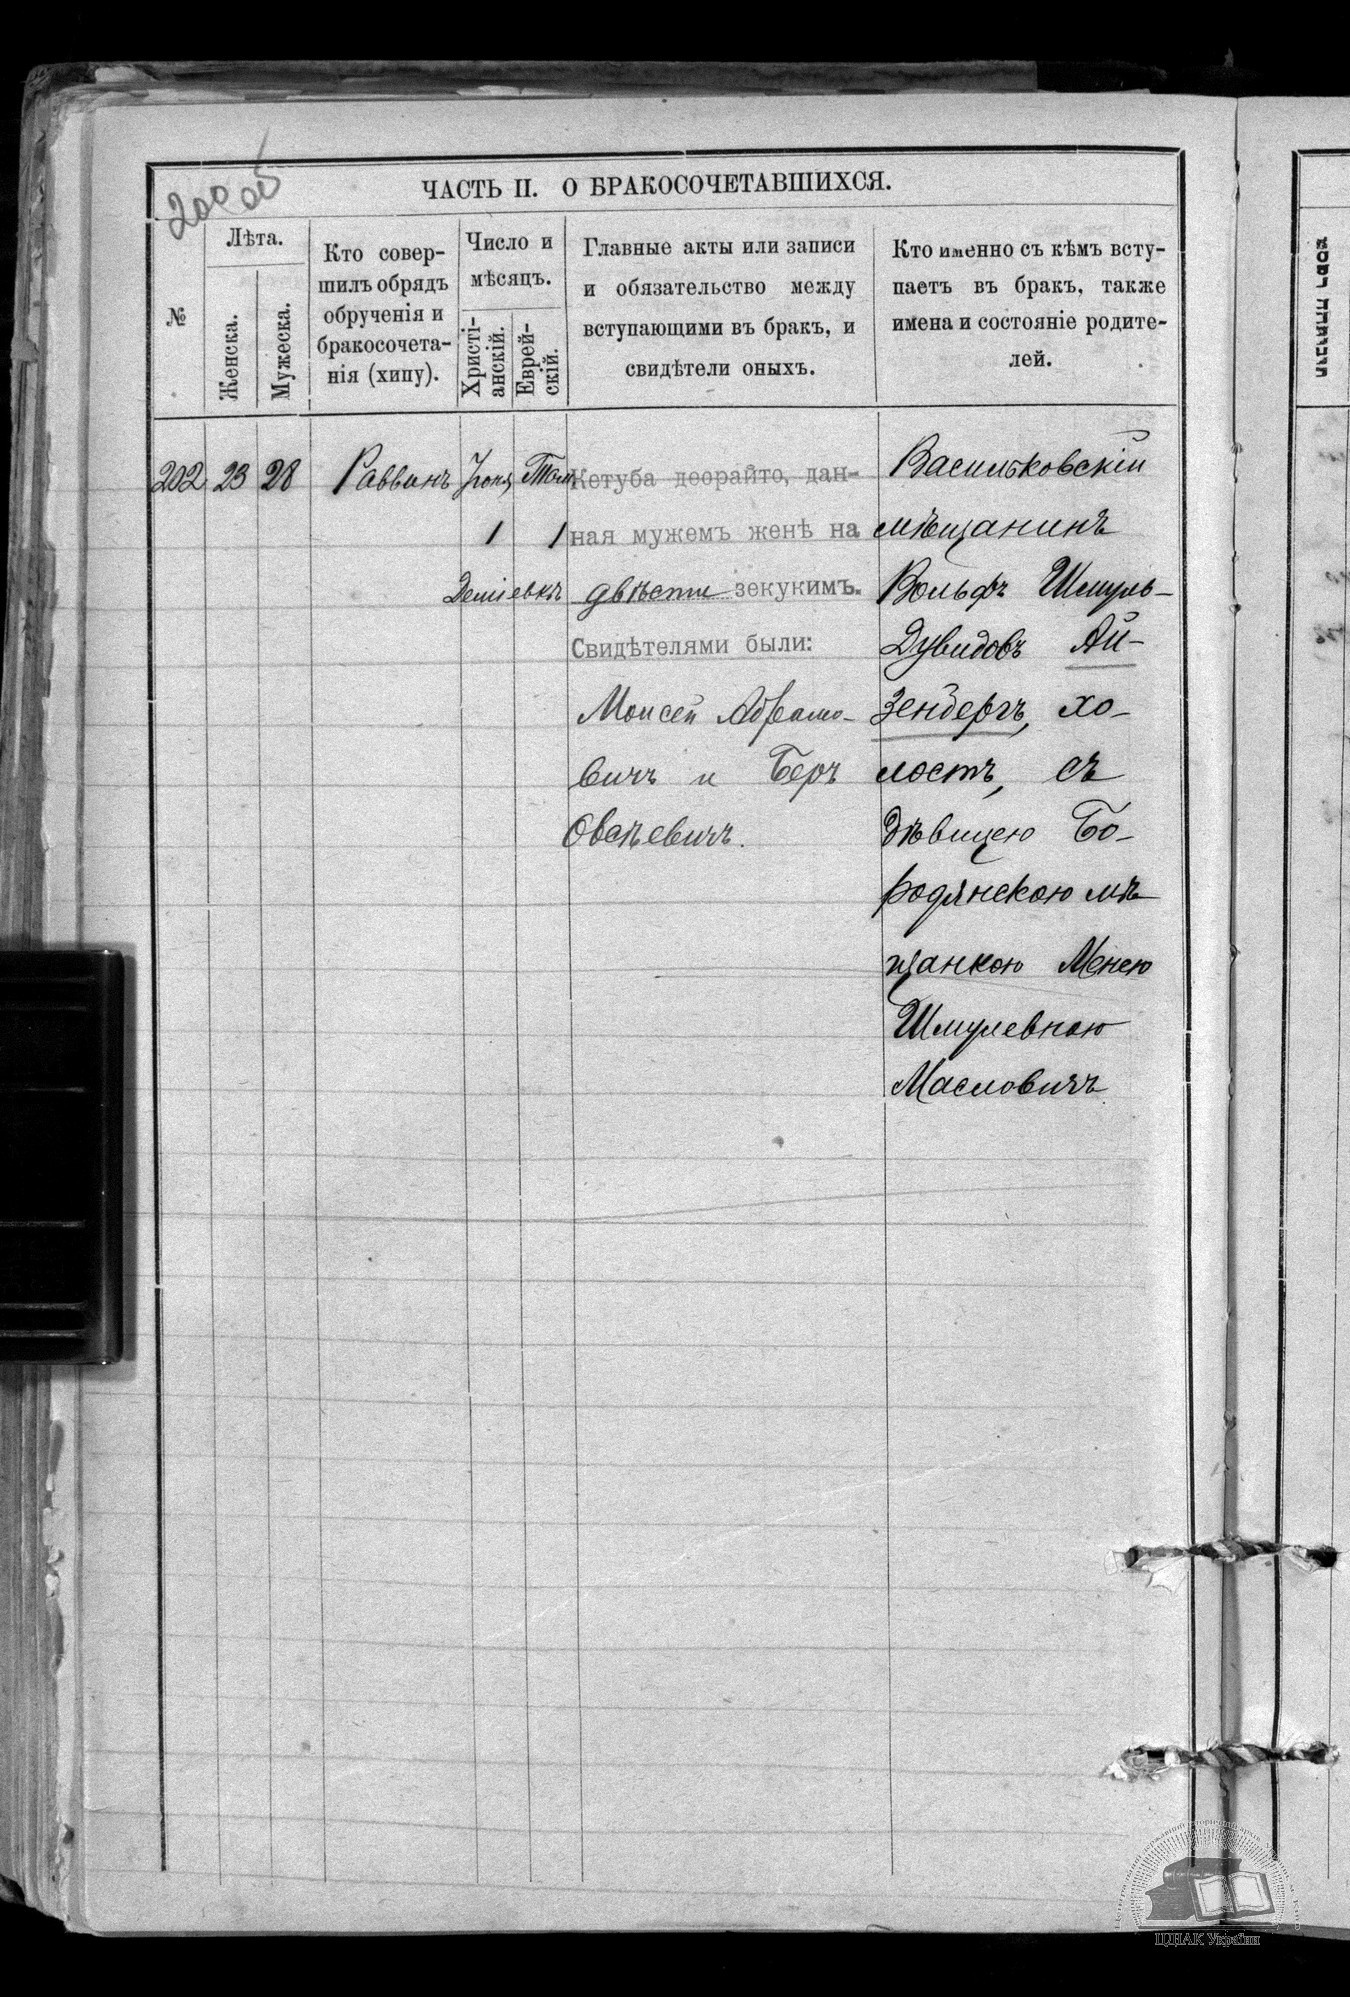 200 об
ЧАСТЬ II. О БРАКОСОЧЕТАВШИХСЯ.
№
Лѣта.
Женска.
Мужеска.
Кто совер-
шилъ обрядъ
обрученія и
бракосочета-
нія (хипу).
Число и
мѣсяцъ.
Христі-
анскій.
Еврей-
скій.
Главные акты или записи
и обязательство между
вступающими въ бракъ, и
свидѣтели оныхъ.
Кто именно съ кѣмъ всту-
паетъ въ бракъ, также
имена и состояніе родите-
лей.
202 23 28 Раввинъ Іюня Там
1 1
Деміевкѣ
Кетуба деорайто, дан-
ная мужемъ женѣ на
двѣсти зекукимъ.
Свидѣтелями были:
Моисей Абрамо-
вичъ и Беръ
Овсѣевичъ.
Васильковскій
мѣщанинъ
Вольфъ Шмуль-
Дувидовъ Ай-
зенбергъ, хо-
лостъ, съ
дѣвицею Бо-
родянскою мѣ
щанкою Менею
Шмулевною
Масловичъ
ЦДІАК України